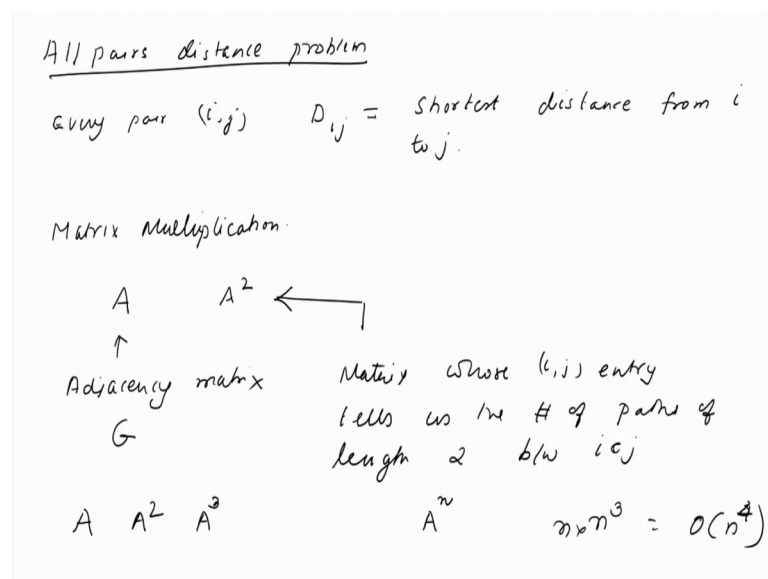 All pairs distance problem
Every pair (i,j) D_ij = Shortest distance from i
to j.
Matrix Multiplication.
A A² ←
↑
Adjacency matrix
G
Matrix whose (i,j) entry
tells us the # of paths of
length 2 b/w i & j
A A² A³ Aⁿ n×n³ = O(n⁴)